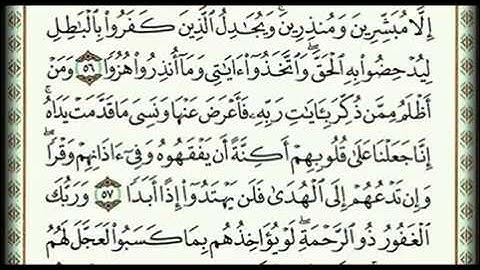 إِلَّا مُبَشِّرِينَ وَمُنذِرِينَ ۚ وَيُجَٰدِلُ الَّذِينَ كَفَرُوا۟ بِالْبَٰطِلِ
لِيُدْحِضُوا۟ بِهِ الْحَقَّ ۖ وَاتَّخَذُوٓا۟ ءَايَٰتِى وَمَآ أُنذِرُوا۟ هُزُوًا ٥٦ وَمَنْ
أَظْلَمُ مِمَّن ذُكِّرَ بِـَٔايَٰتِ رَبِّهِۦ فَأَعْرَضَ عَنْهَا وَنَسِىَ مَا قَدَّمَتْ يَدَاهُ ۚ
إِنَّا جَعَلْنَا عَلَىٰ قُلُوبِهِمْ أَكِنَّةً أَن يَفْقَهُوهُ وَفِىٓ ءَاذَانِهِمْ وَقْرًا ۖ
وَإِن تَدْعُهُمْ إِلَى الْهُدَىٰ فَلَن يَهْتَدُوٓا۟ إِذًا أَبَدًا ٥٧ وَرَبُّكَ
الْغَفُورُ ذُو الرَّحْمَةِ ۖ لَوْ يُؤَاخِذُهُم بِمَا كَسَبُوا۟ لَعَجَّلَ لَهُمُ